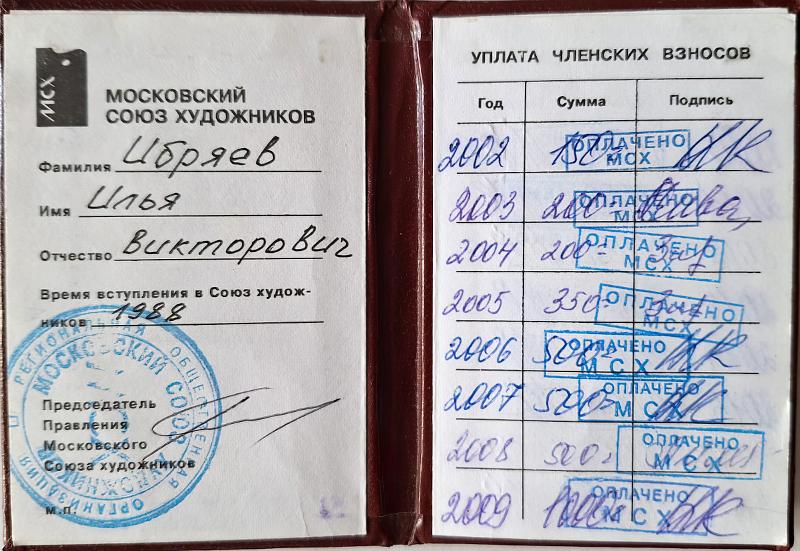 МСХ
МОСКОВСКИЙ
СОЮЗ ХУДОЖНИКОВ
Фамилия Ибряев
Имя Илья
Отчество Викторович
Время вступления в Союз худож-
ников 1988
Председатель
Правления
Московского
Союза художников
м.п.
РЕГИОНАЛЬНАЯ ОБЩЕСТВЕННАЯ ОРГАНИЗАЦИЯ
МОСКОВСКИЙ СОЮЗ ХУДОЖНИКОВ
УПЛАТА ЧЛЕНСКИХ ВЗНОСОВ
Год Сумма Подпись
2002 150- ОПЛАЧЕНО МСХ
2003 200- ОПЛАЧЕНО МСХ
2004 200- ОПЛАЧЕНО МСХ
2005 350- ОПЛАЧЕНО МСХ
2006 500- ОПЛАЧЕНО МСХ
2007 500- ОПЛАЧЕНО МСХ
2008 500- ОПЛАЧЕНО МСХ
2009 1000- ОПЛАЧЕНО МСХ